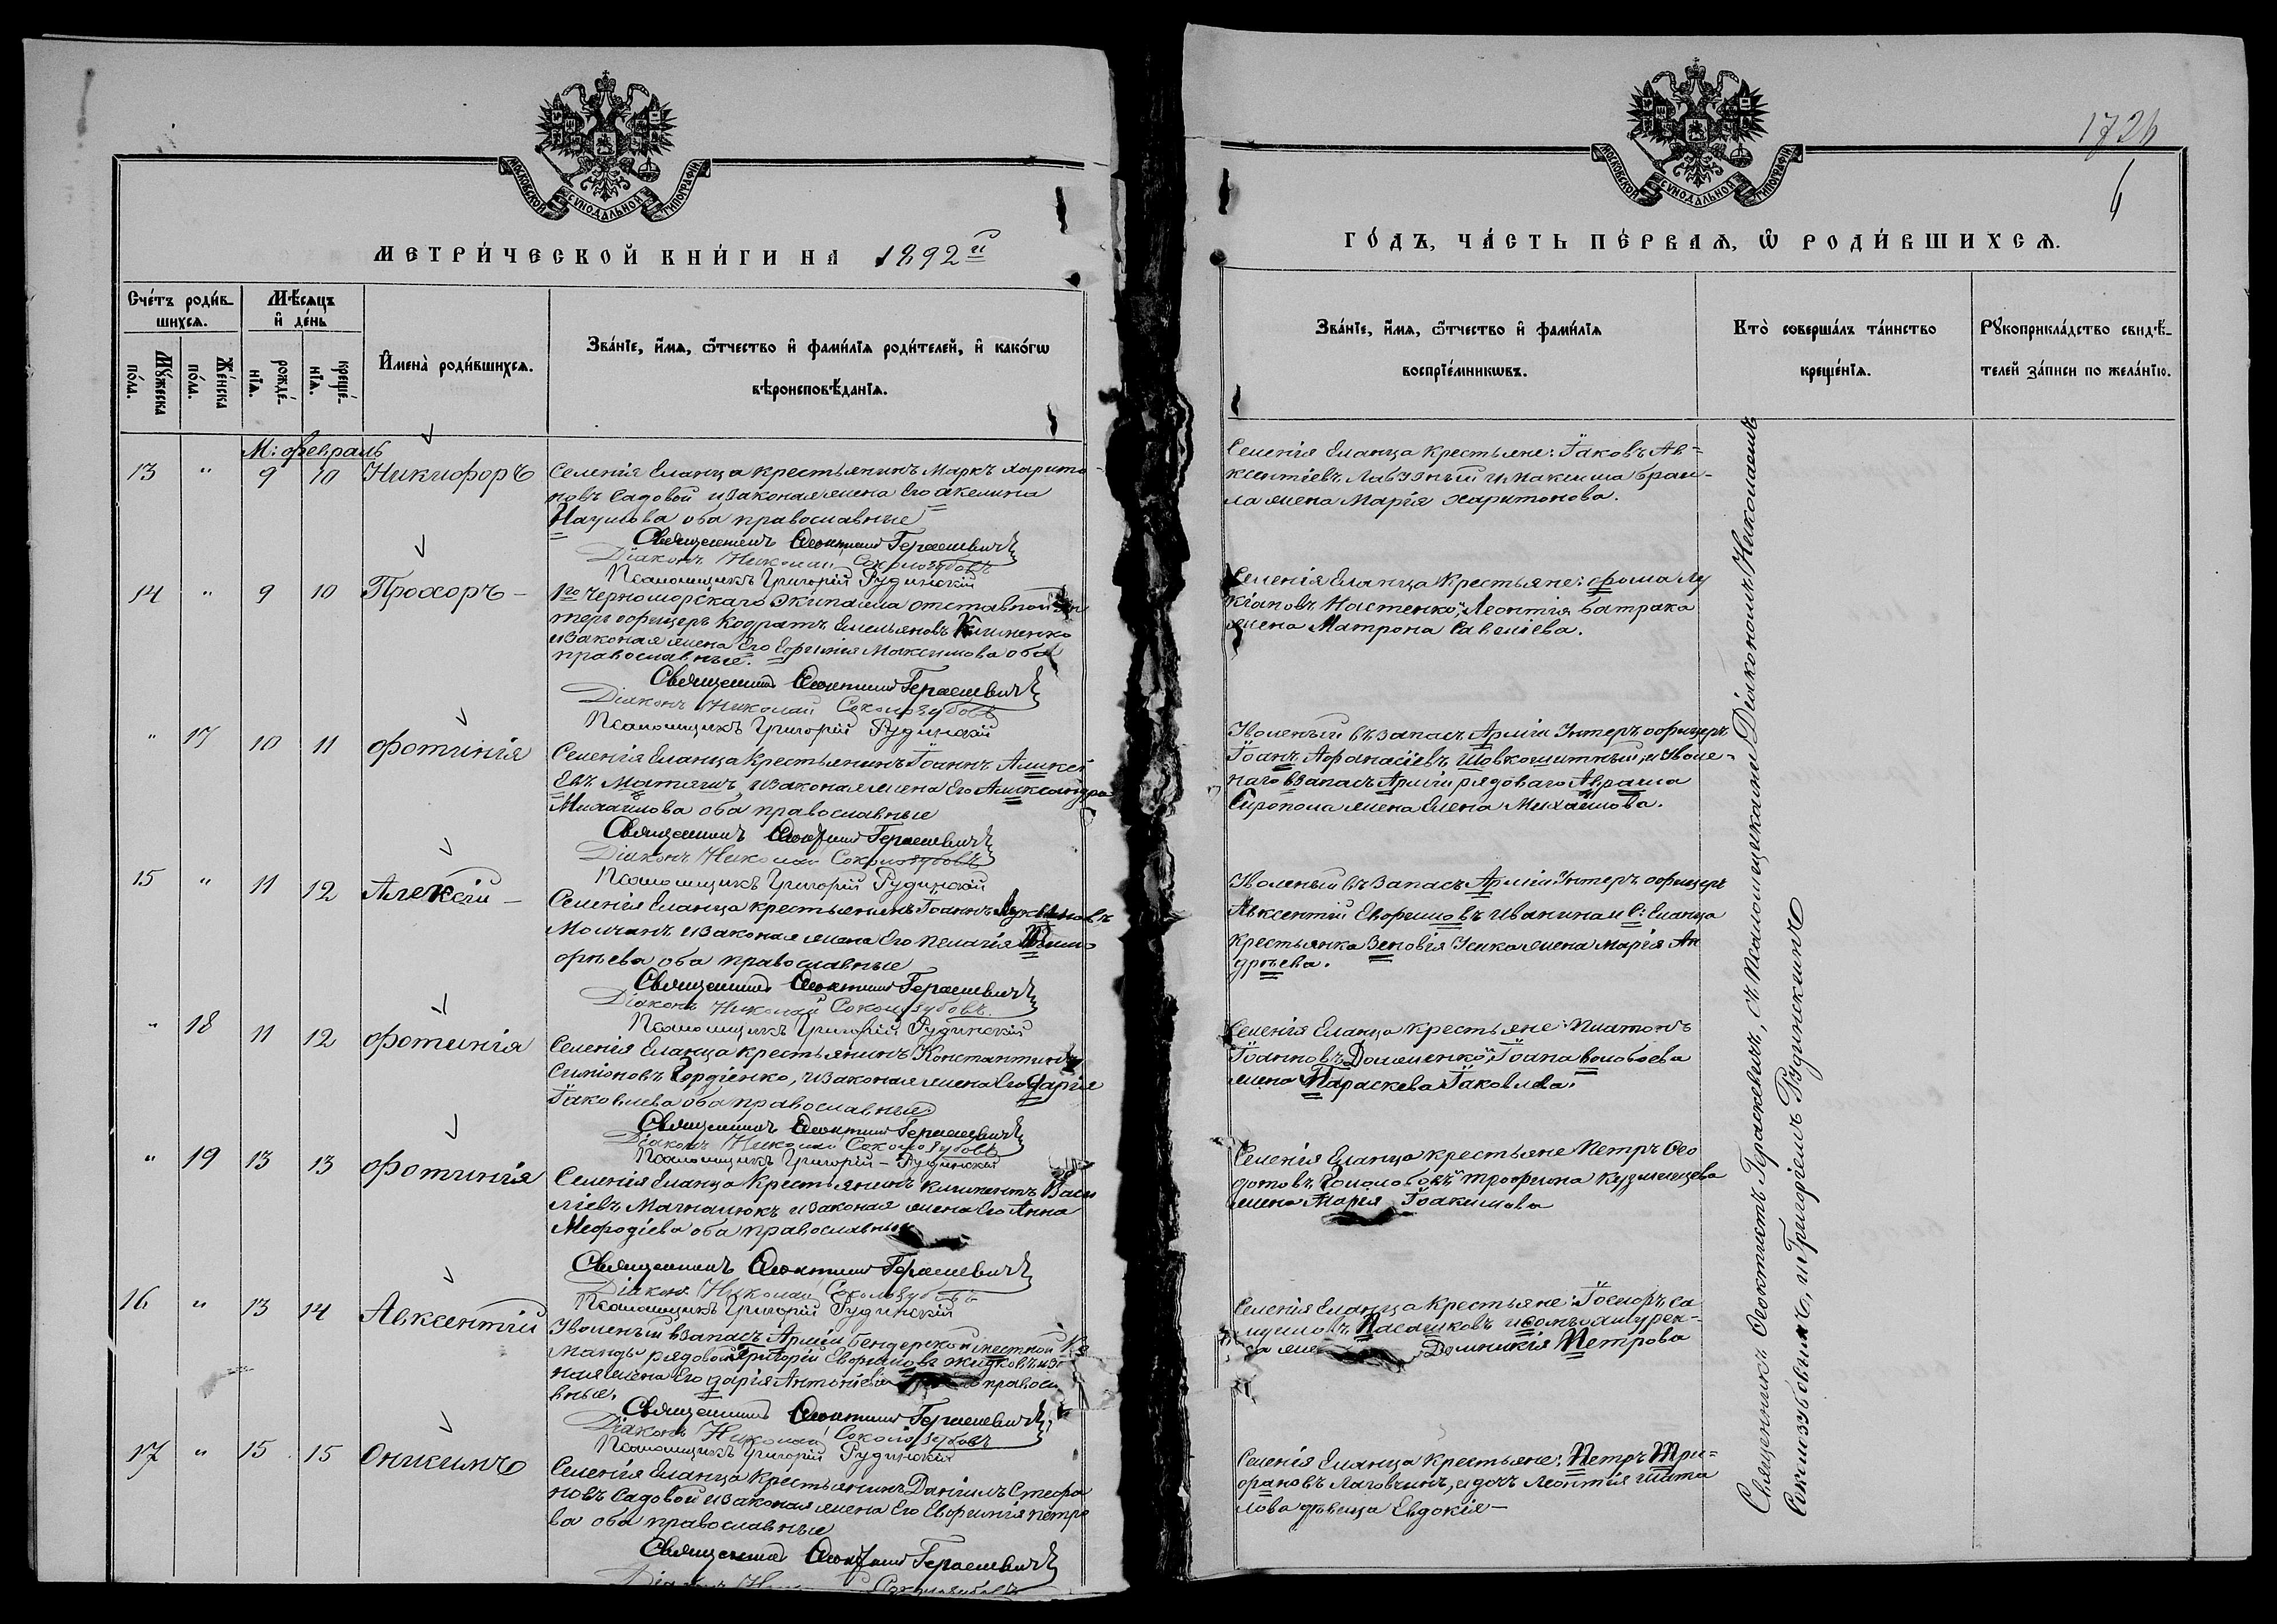 МОСКОВСКОЙ СѴНОДАЛЬНОЙ ТИПОГРАФІИ
МЕТРИ́ЧЕСКОЙ КНИ́ГИ НА 1892й
Сче́тъ роди́в-
шихсѧ.
Мѣ́сяцъ
и҆ де́нь
Мꙋ́жеска
по́ла.
Же́нска
по́ла.
рожде́-
нїѧ.
креще́-
нїѧ.
И҆мена̀ роди́вшихсѧ.
Зва́нїе, и҆́мѧ, ѻ҆́тчество и҆ фами́лїѧ роди́телей, и҆ како́гѡ
вѣроисповѣ́данїѧ.
М: февраль
13 " 9 10 Никифоръ
Селенія Еланца крестьянинъ Маркъ Харито-
новъ Садовой и законая жена Его Акелина
Наумова оба православные
Священникъ Феоктистъ Гераскевичъ
Діаконъ Николай Сокологубовъ
Псаломщикъ Григорій Рудинскій
14 " 9 10 Прохоръ -
1го Черноморскаго Экипажа отставной Ун
теръ офицеръ Кодратъ Емельяновъ Клименко
и законая жена Его Ефимія Максимова оба
православные.
Священникъ Феоктистъ Гераскевичъ
Діаконъ Николай Сокологубовъ
Псаломщикъ Григорій Рудинскій
" 17 10 11 Фотинія
Селенія Еланца Крестьянинъ Іоаннъ Алексѣ
Евъ Матяшъ, и законая жена Его Александра
Михайлова оба православные
Священникъ Феоктистъ Гераскевичъ
Діаконъ Николай Сокологубовъ
Псаломщикъ Григорій Рудинскій
15 " 11 12 Алексій -
Селенія Еланца крестьянинъ Іоаннъ
Молчанъ и законая жена Его Пелагія Тимо
фѣева оба православные
Священникъ Феоктистъ Гераскевичъ
Діаконъ Николай Сокологубовъ
Псаломщикъ Григорій Рудинскій
" 18 11 12 Фотинія
Селенія Еланца крестьянинъ Константинъ
Симіоновъ Гордіенко, и законая жена Его Дарія
Іаковлева оба православные
Священникъ Феоктистъ Гераскевичъ
Діаконъ Николай Сокологубовъ
Псаломщикъ Григорій - Рудинскій
" 19 13 13 Фотинія
Селенія Еланца Крестьянинъ Климентъ Васи
ліевъ Магналюкъ и законая жена Его Анна
Мефодіева оба православные
Священникъ Феоктистъ Гераскевичъ
Діаконъ Николай Сокологубовъ
Псаломщикъ Григорій Рудинскій
16 " 13 14 Авксентій
Уволеный в запасъ Арміи Бендерской местной Ко
манды рядовой Григорій Евфимовъ Жидковъ и за
ная жена Его Дарія Антоніева православ
вные.
Священникъ Феоктистъ Гераскевичъ
Діаконъ Николай Сокологубовъ
Псаломщикъ Григорій Рудинскій
17 " 15 15 Онисимъ
Селенія Еланца Крестьянинъ Даніилъ Стефа
новъ Садовой и законая жена Его Евфимія Петро
ва оба православные
Священникъ Феоктистъ Гераскевичъ
1724
МОСКОВСКОЙ СѴНОДАЛЬНОЙ ТИПОГРАФІИ
ГО́ДЪ, ЧА́СТЬ ПЕ́РВАѦ, Ѡ҆ РОДИ́ВШИХСѦ.
Зва́нїе, и҆́мѧ, ѻ҆́тчество и҆ фами́лїѧ
воспрїе́мникѡвъ.
Кто̀ соверша́лъ та́инство
креще́нїѧ.
Рꙋкоприкла́дство свидѣ́-
телей за́писи по жела́нїю.
Селенія Еланца крестьяне: Іаковъ Ав=
ксентіевъ Лавзный и Максима Браи-
ла жена Марія Харитонова.
Селенія Еланца Крестьяне: Фома Лу
кіановъ Настенко, Леонтія Батрака
жена Матрона Савеліева.
Уволеный въ запасъ Арміи Унтеръ офицеръ
Іоанъ Афанасіевъ Шовкошитный, и Уволе-
наго в запасъ Арміи рядоваго Аврама
Сиропола жена Елена Михайлова.
Уволеный въ Запасъ Арміи Унтеръ офицеръ
Авксентій Евфимовъ Иванина и С: Еланца
Крестьянка Зеновія Усика жена Марія Ан
дрѣева.
Селенія Еланца Крестьяне: Платонъ
Іоанновъ Доляшенко, Іоана Волобоева
жена Параскева Іаковлева.
Селенія Еланца крестьяне Петръ Фео
дотовъ Гололобовъ Трофима Кузьменцева
жена Марія Іоакимова
Селенія Еланца Крестьяне: Іосифъ Са
муиловъ Пасашковъ
Домникія Петрова
Селенія Еланца Крестьяне: Петръ Три=
фановъ Лаговчинъ, и дочъ Леонтія Шата
лова дѣвица Евдокія -
Священникъ Феоктистъ Гераскевичъ, съ Псаломщиками Діакономъ Николаемъ
Сокологубовымъ, и Григоріемъ Рудинскимъ